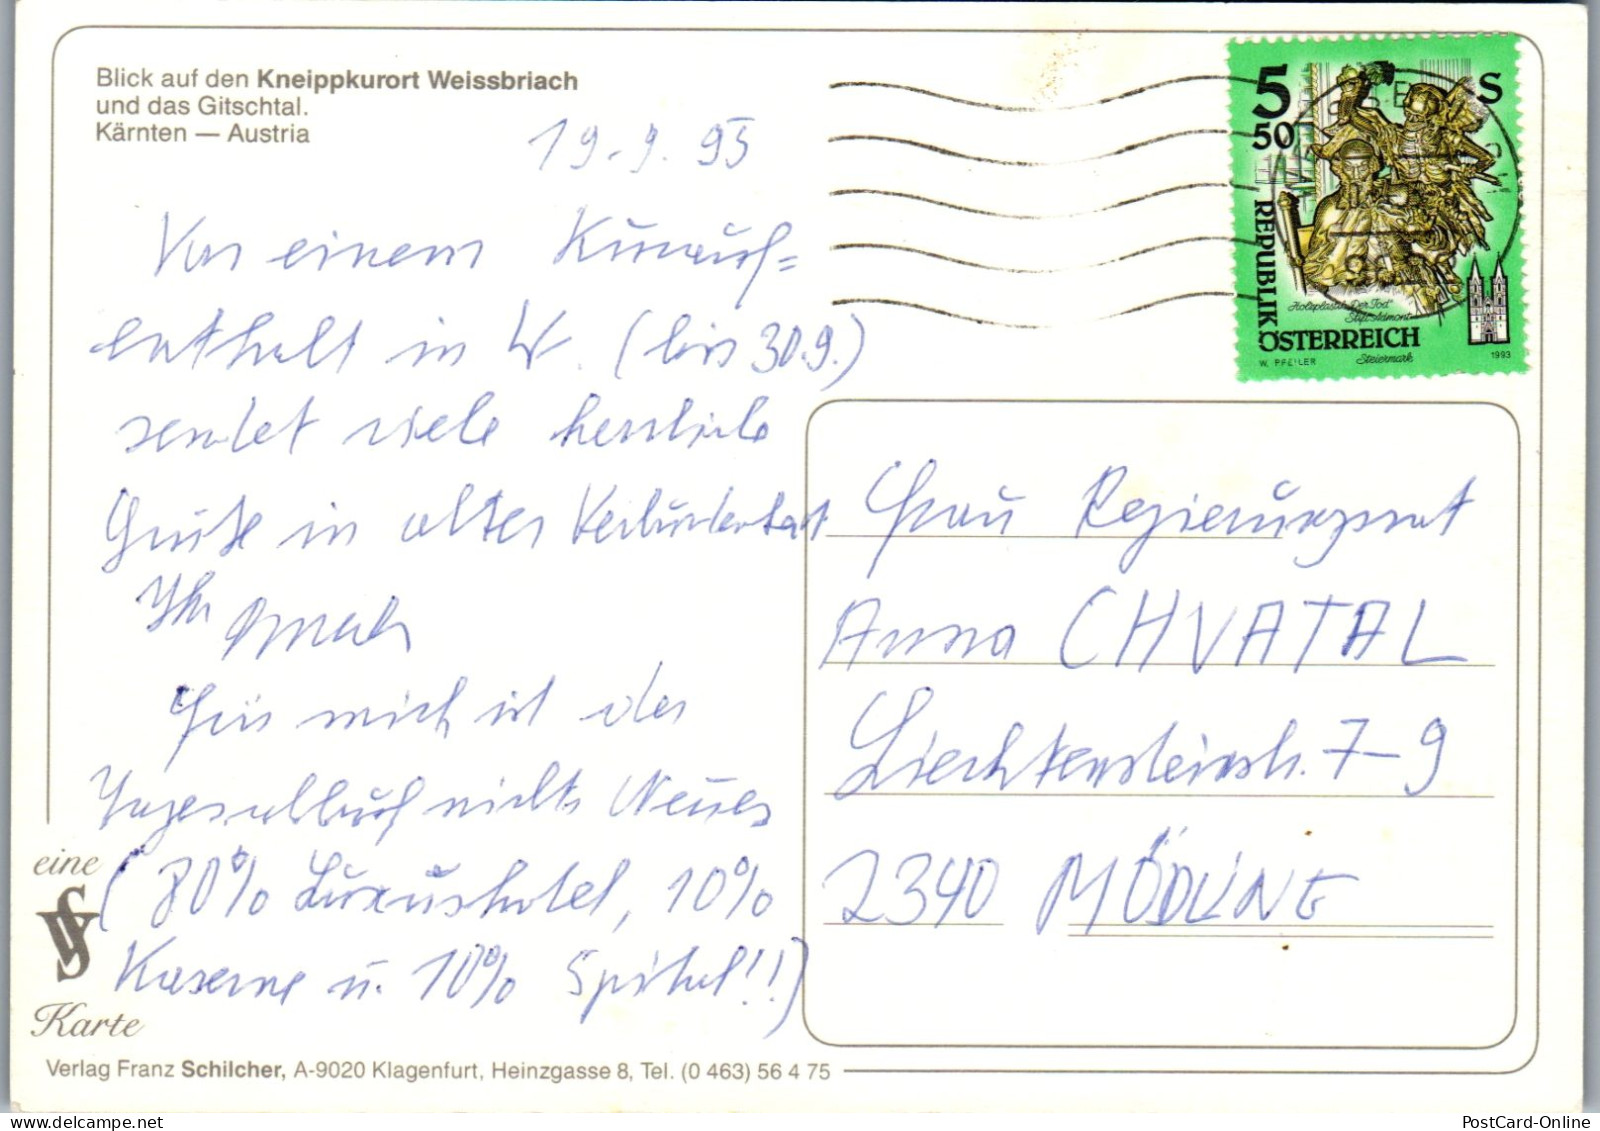 Blick auf den Kneippkurort Weissbriach
und das Gitschtal.
Kärnten — Austria
19.9.95
Von einem Kurauf=
enthalt in W. (bis 30.9.)
sendet viele herzliche
Grüße in alter Verbundenheit
Ihr
Für mich ist der
Tagesablauf nichts Neues
(80% Luxushotel, 10%
Kaserne u. 10% Spital!!)
eine
Karte
Verlag Franz Schilcher, A-9020 Klagenfurt, Heinzgasse 8, Tel. (0 463) 56 4 75
5 S
50
REPUBLIK
ÖSTERREICH
Holzplastik „Der Tod"
Stift Admont
Steiermark
W. PFEILER
1993
Frau Regierungsrat
Anna CHVATAL
Liechtensteinstr. 7-9
2340 MÖDLING
PostCard-Online